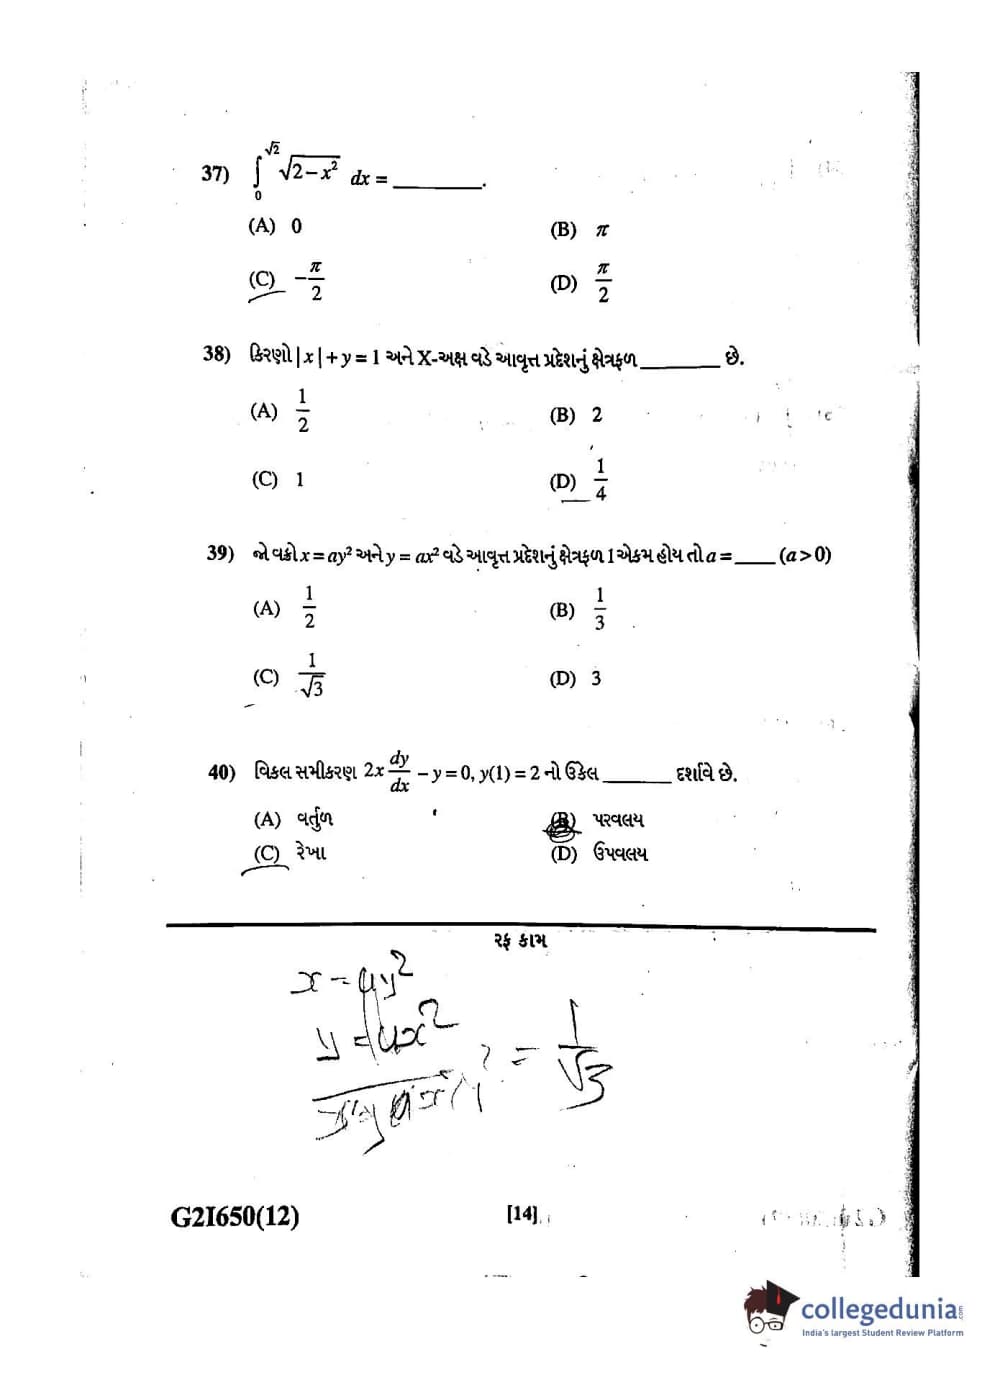 37) ∫₀^√2 √(2−x²) dx = ________.
(A) 0 (B) π
(C) −π/2 (D) π/2
38) કિરણો |x| + y = 1 અને X-અક્ષ વડે આવૃત્ત પ્રદેશનું ક્ષેત્રફળ ________ છે.
(A) 1/2 (B) 2
(C) 1 (D) 1/4
39) જો વક્રો x = ay² અને y = ax² વડે આવૃત્ત પ્રદેશનું ક્ષેત્રફળ 1 એકમ હોય તો a = ____ (a > 0)
(A) 1/2 (B) 1/3
(C) 1/√3 (D) 3
40) વિકલ સમીકરણ 2x dy/dx − y = 0, y(1) = 2 નો ઉકેલ ______ દર્શાવે છે.
(A) વર્તુળ (B) પરવલય
(C) રેખા (D) ઉપવલય
રફ કામ
x = ay²
y = ax²
= 1/√3
G2I650(12) [14]
collegedunia.com
India's largest Student Review Platform